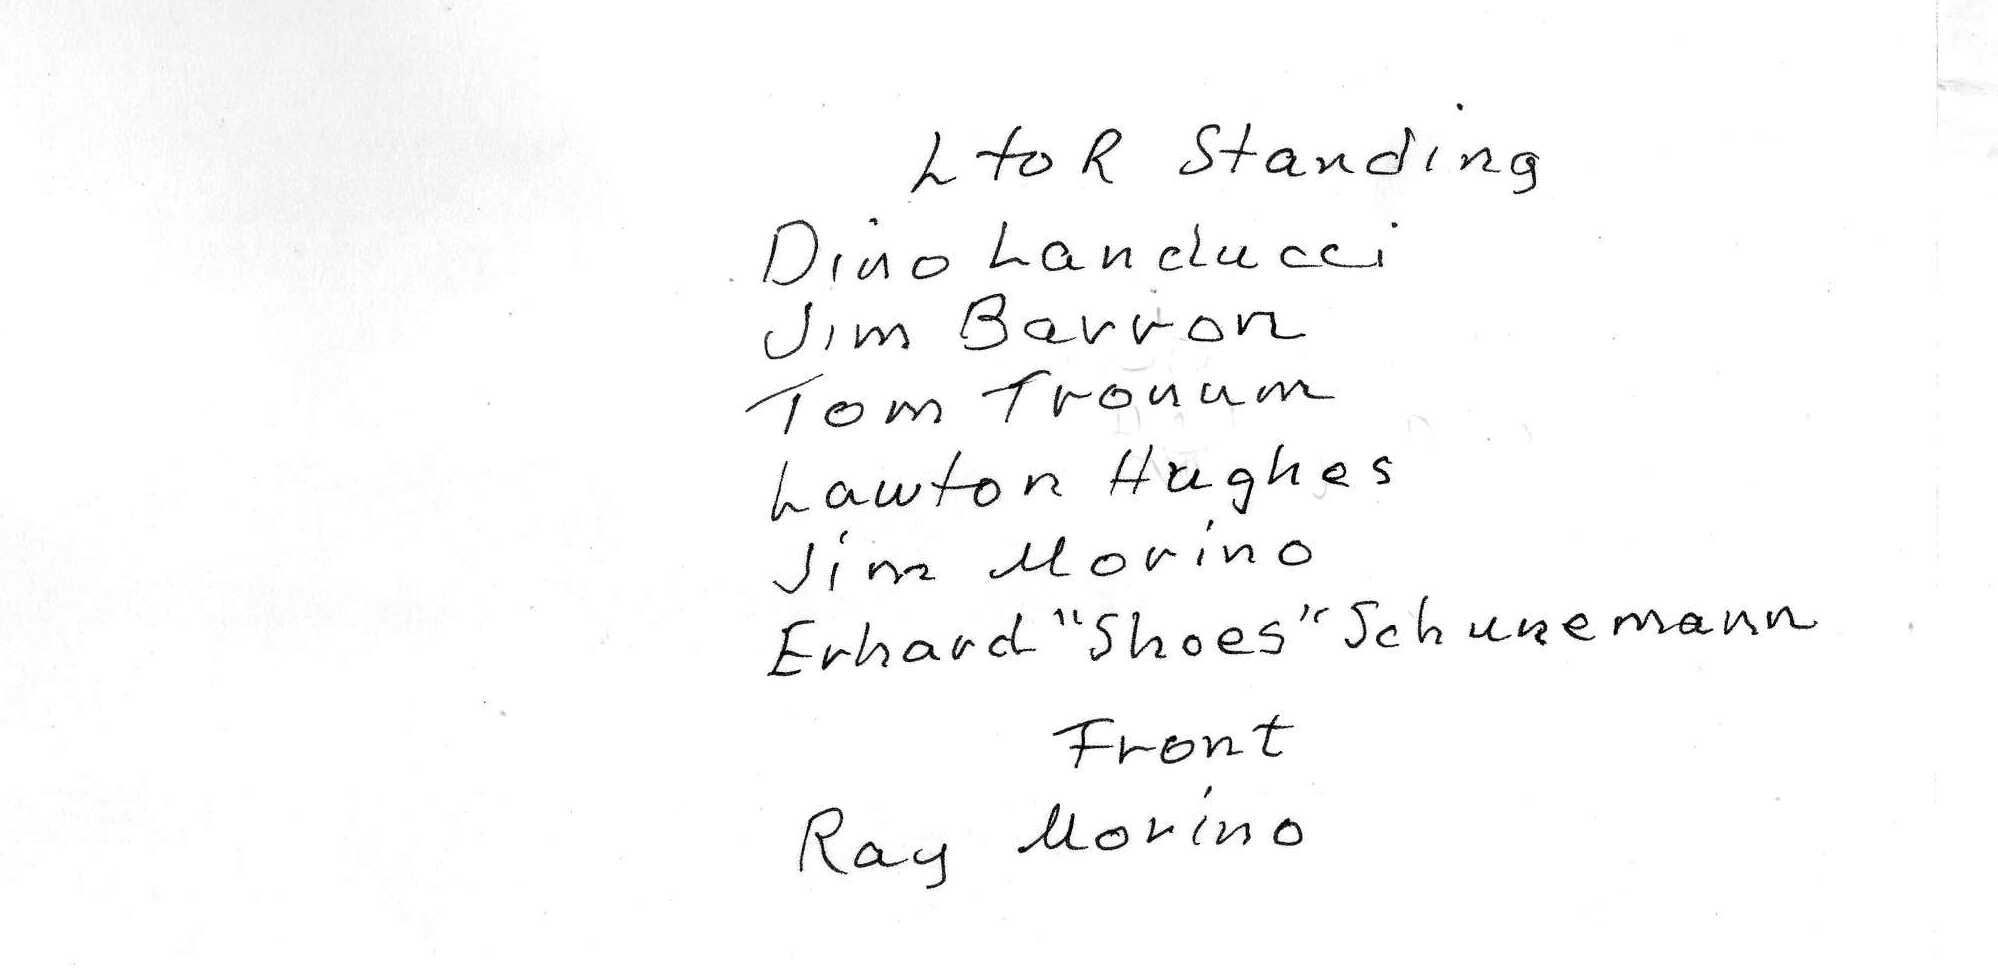 L to R Standing
Dino Landucci
Jim Barron
Tom Tronum
Lawton Hughes
Jim Morino
Erhard "Shoes" Schunemann
Front
Ray Morino